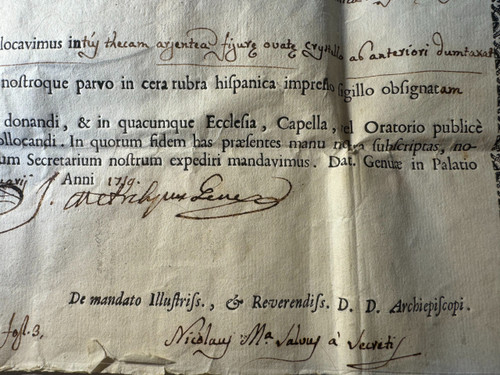 locavimus intus thecam argenteā figuræ ovatæ crystallo ab anteriori dumtaxat
nostroque parvo in cera rubra hispanica impresso sigillo obsignatam
donandi, & in quacumque Ecclesia, Capella, vel Oratorio publicè
ollocandi. In quorum fidem has præsentes manu nr̃a subscriptas, no-
um Secretarium nostrum expediri mandavimus. Dat. Genuæ in Palatio
Anni 1719.
J. Archiepus
De mandato Illustriss., & Reverendiss. D. D. Archiepiscopi.
fol. 3, Nicolaus Ma. Salvus à Secretis